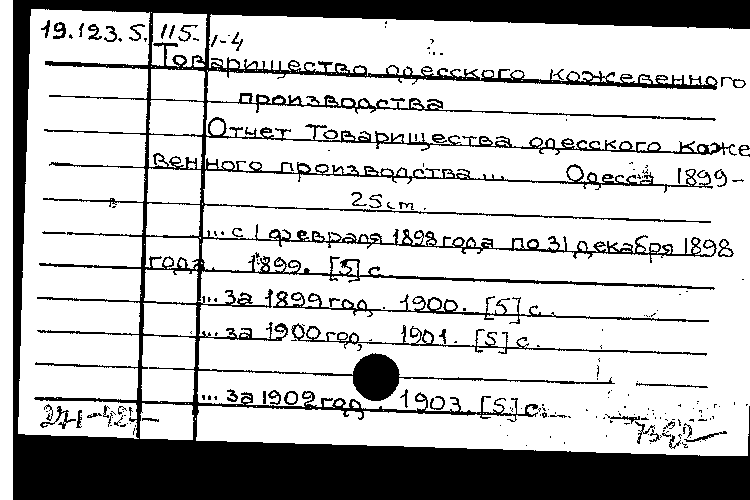 19.123.5.115. 1-4
Товарищество одесского кожевенного
производства
Отчет Товарищества одесского коже
венного производства... Одесса, 1899-
25 ст.
... с 1 февраля 1898 года по 31 декабря 1898
года. 1899. [5] с.
... за 1899 год. 1900. [5] с.
... за 1900 год. 1901. [5] с.
... за 1902 год. 1903. [5] с.
271-424
7392